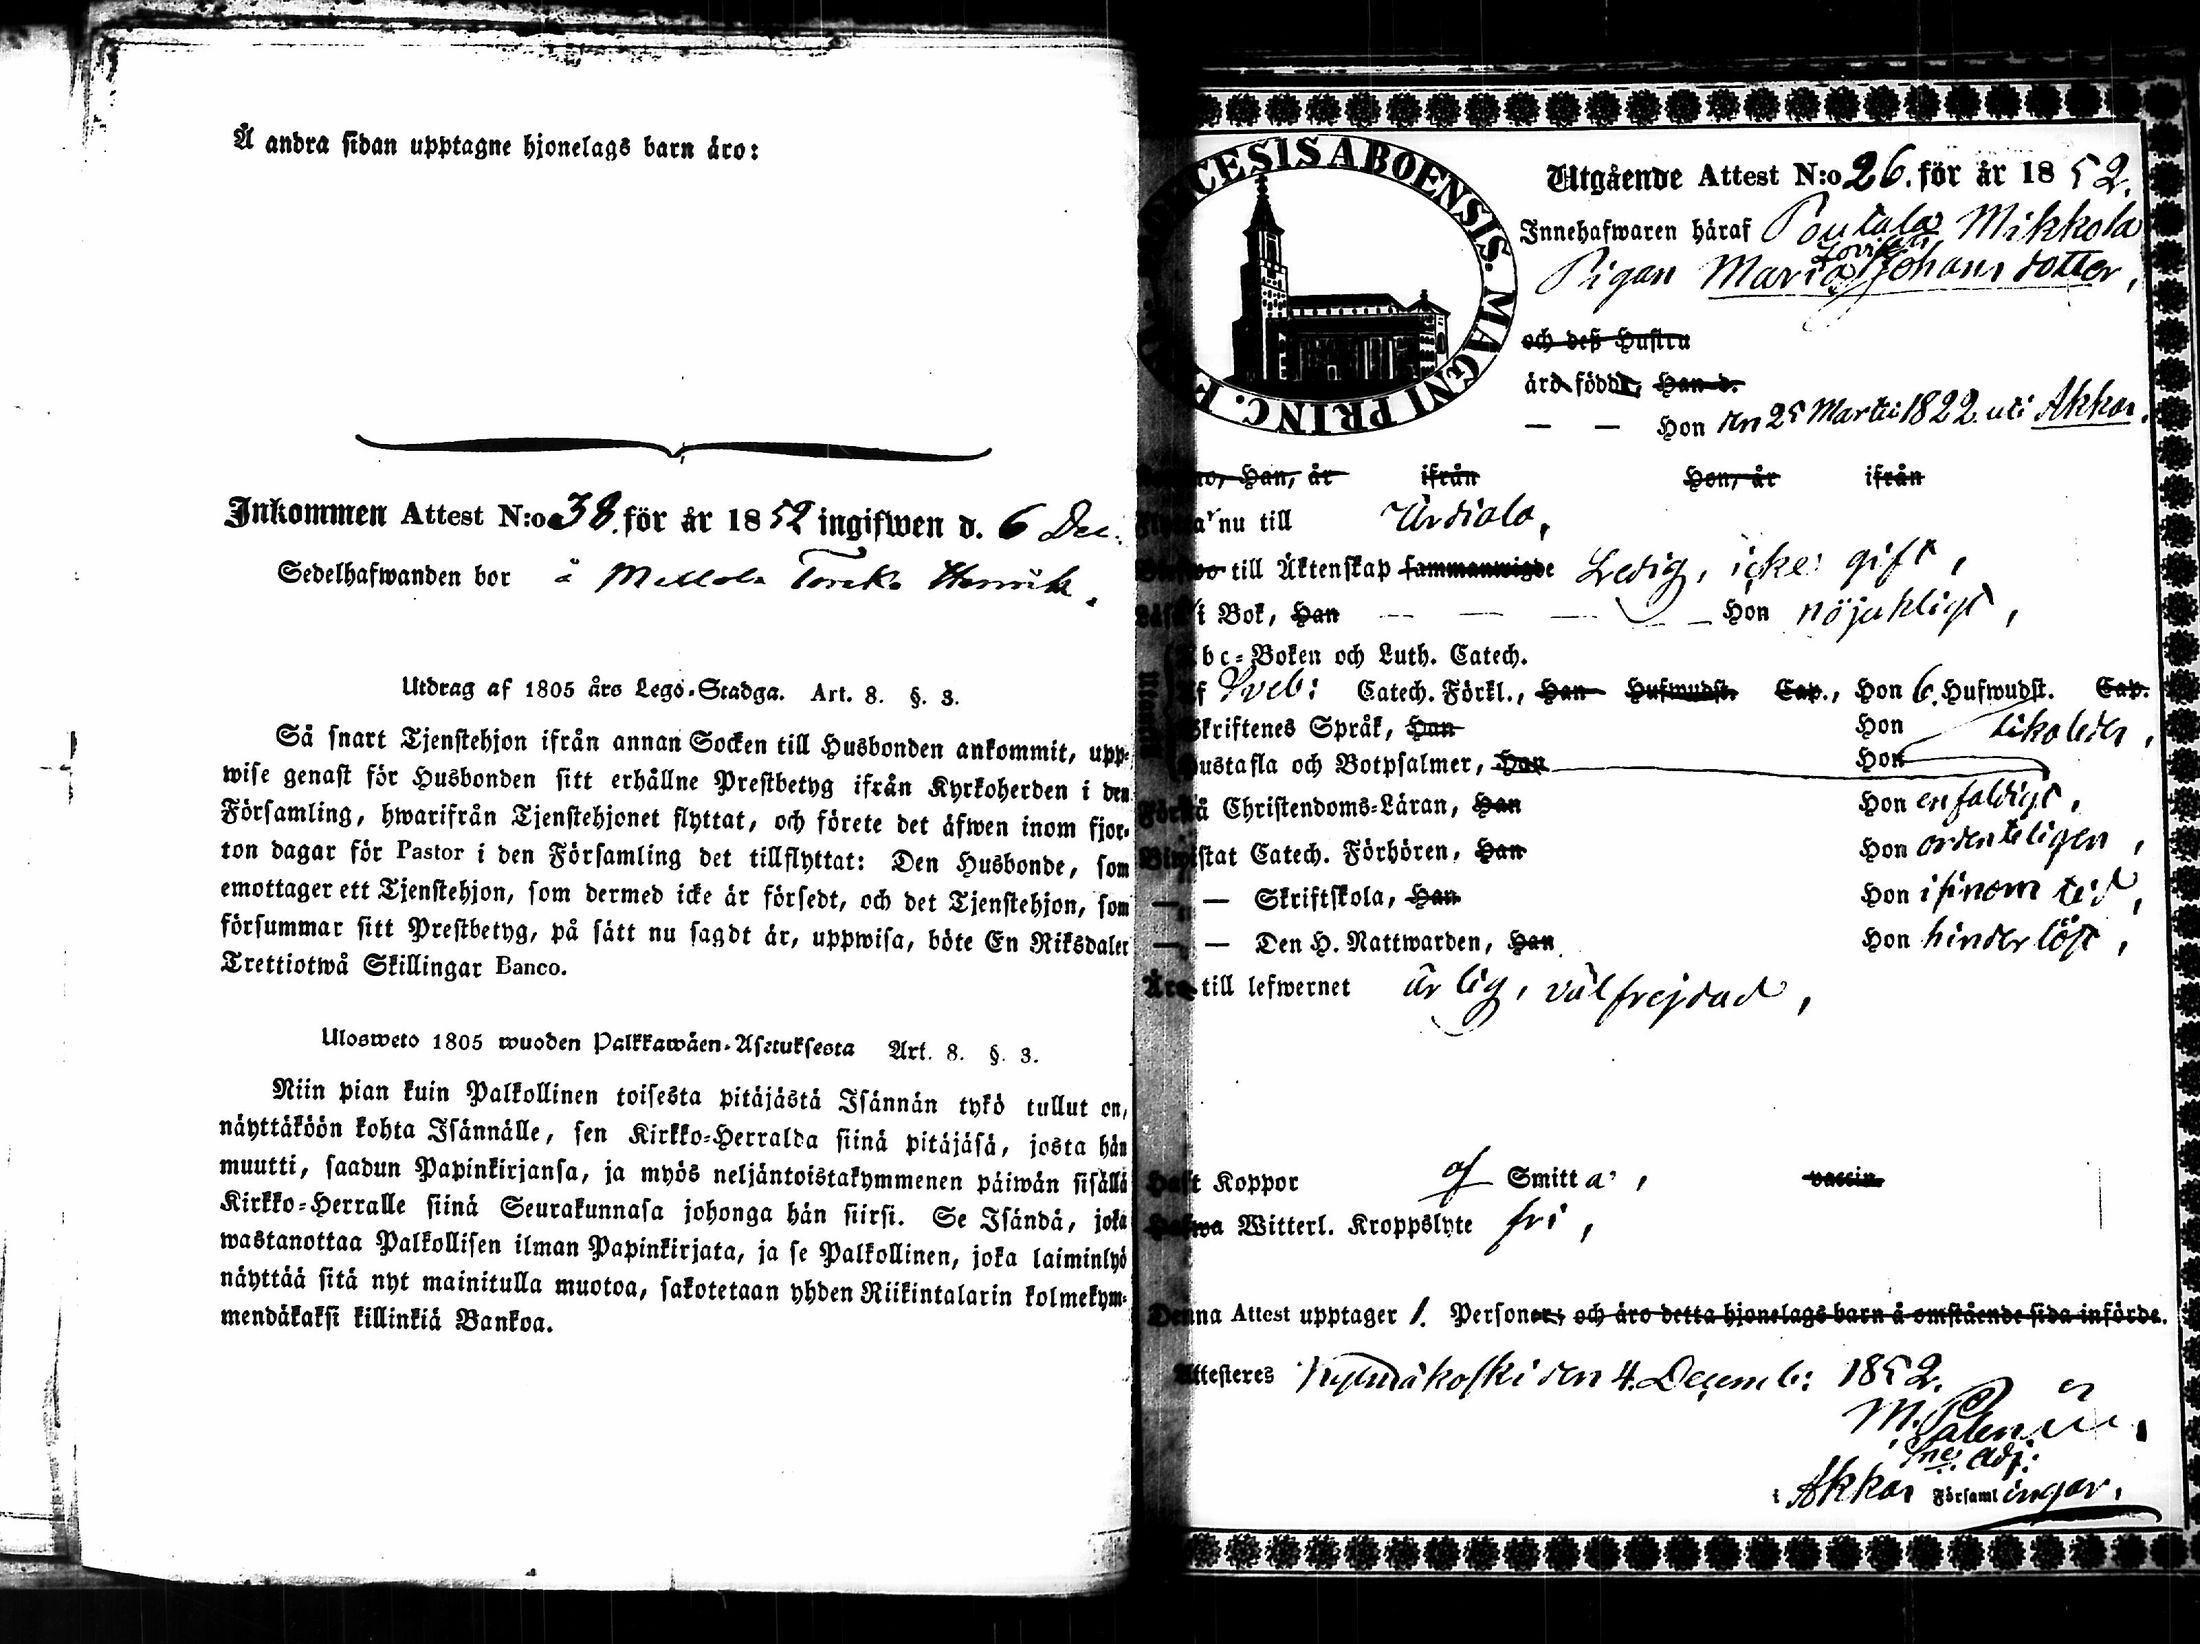 Å andra sidan upptagne hjonelags barn äro:
Inkommen Attest N:o 38. för år 1852 ingifwen d. 6 Dec.
Sedelhafwanden bor å
Utdrag af 1805 års Lego-Stadga. Art. 8. §. 3.
Så snart Tjenstehjon ifrån annan Socken till Husbonden ankommit, upp-
wise genast för Husbonden sitt erhållne Prestbetyg ifrån Kyrkoherden i den
Församling, hwarifrån Tjenstehjonet flyttat, och förete det äfwen inom fjor-
ton dagar för Pastor i den Församling det tillflyttat: Den Husbonde, som
emottager ett Tjenstehjon, som dermed icke är försedt, och det Tjenstehjon, som
försummar sitt Prestbetyg, på sätt nu sagdt är, uppwisa, böte En Riksdaler
Trettiotwå Skillingar Banco.
Ulosweto 1805 wuoden Palkkawäen-Asetuksesta Art. 8. §. 3.
Niin pian kuin Palkollinen toisesta pitäjästä Isännän tykö tullut on,
näyttäköön kohta Isännälle, sen Kirkko-Herralda siinä pitäjäsä, josta hän
muutti, saadun Papinkirjansa, ja myös neljäntoistakymmenen päiwän sisällä
Kirkko-Herralle siinä Seurakunnasa johonga hän siirsi. Se Isändä, joka
wastanottaa Palkollisen ilman Papinkirjata, ja se Palkollinen, joka laiminlyö
näyttää sitä nyt mainitulla muotoa, sakotetaan yhden Riikintalarin kolmekym-
mendäkaksi killinkiä Bankoa.
DIOECESIS ABOENSIS. MAGNI PRINC. F
Utgående Attest N:o 26. för år 1852.
Innehafwaren häraf Poutala Mikkola
Lovisa
Pigan Maria Johansdotter,
och deß Hustru
äro födde, Han d.
— — Hon den 25 Martii 1822. uti Akkas.
Han, år ifrån Hon, år ifrån
nu till Urdiala,
till Äktenskap sammanwigde Ledig, icke gift,
i Bok, Han — — — Hon nöjaktligt,
Abc-Boken och Luth. Catech.
Af Sveb: Catech. Förkl., Han Hufwudst. Cap., Hon 6. Hufwudst. Cap.
Skriftenes Språk, Han Hon likaledes,
Hustafla och Botpsalmer, Han Hon
Förstå Christendoms-Läran, Han Hon enfaldigt,
Biwistat Catech. Förhören, Han Hon ordenteligen,
— — Skriftskola, Han Hon i sinom tid,
— — Den H. Nattwarden, Han Hon hinderlöst,
Äro till lefwernet ärlig, välfrejdad,
Haft Koppor af Smitta,  vaccin.
Hafwa Witterl. Kroppslyte fri,
Denna Attest upptager 1. Personer; och äro detta hjonelags barn å omstående sida införde.
Attesteras Kylmäkoski den 4. Decemb: 1852.
M.
adj:
i Akkas Församlingar.